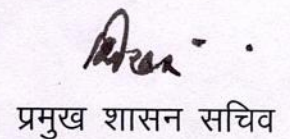 प्रमुख शासन सचिव